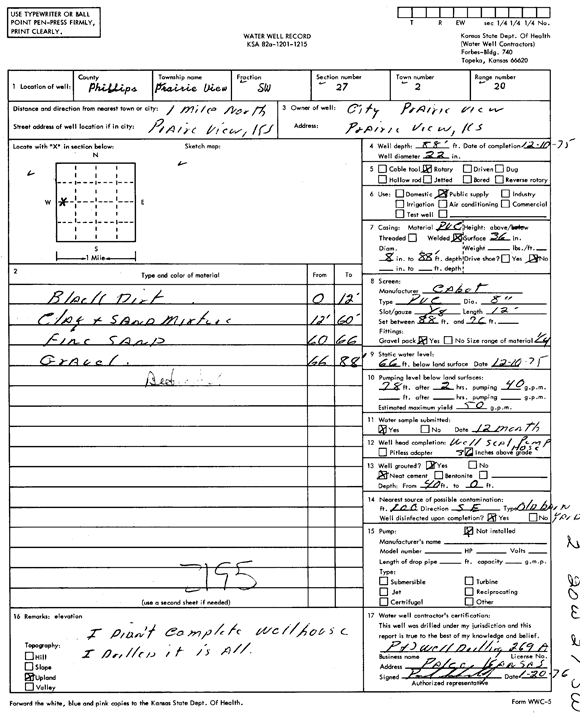 USE TYPEWRITER OR BALL
POINT PEN-PRESS FIRMLY,
PRINT CLEARLY.
WATER WELL RECORD
KSA 82a-1201-1215
T R EW sec 1/4 1/4 1/4 No.
Kansas State Dept. Of Health
(Water Well Contractors)
Forbes-Bldg. 740
Topeka, Kansas 66620
1 Location of well: County Phillips Township name Prairie View Fraction SW Section number 27 Town number 2 Range number 20
Distance and direction from nearest town or city: 1 Miles North
Street address of well location if in city: Prairie View, KS
3 Owner of well: City Prairie View
Address: Prairie View, KS
Locate with "X" in section below: Sketch map:
N
W E
S
1 Mile
4 Well depth: 88' ft. Date of completion 12-10-75
Well diameter 22 in.
5 Cable tool X Rotary Driven Dug
Hollow rod Jetted Bored Reverse rotary
6 Use: Domestic X Public supply Industry
Irrigation Air conditioning Commercial
Test well
7 Casing: Material PVC Height: above/below
Threaded Welded X Surface 36 in.
Diam. Weight lbs./ft.
8 in. to 88 ft. depth Drive shoe? Yes X No
in. to ft. depth
2 Type and color of material From To
Black Dirt 0 12'
Clay + Sand Mixture 12' 60'
Fine Sand 60 66
Gravel. 66 88'
8 Screen:
Manufacturer Cabot
Type PVC Dia. 8"
Slot/gauze 1/8 Length 12'
Set between 88 ft. and 76 ft.
Fittings:
Gravel pack X Yes No Size range of material 1/4
9 Static water level:
66 ft. below land surface Date 12-10-75
10 Pumping level below land surfaces:
78 ft. after 2 hrs. pumping 40 g.p.m.
ft. after hrs. pumping g.p.m.
Estimated maximum yield 50 g.p.m.
11 Water sample submitted:
X Yes No Date 12 month
12 Well head completion: Well Seal Pump
Hose
Pitless adapter 36 Inches above grade
13 Well grouted? X Yes No
X Neat cement Bentonite
Depth: From 40 ft. to 0 ft.
14 Nearest source of possible contamination:
ft. 100 Direction SE Type Old barn
yard
Well disinfected upon completion? X Yes No
15 Pump: X Not installed
Manufacturer's name
Model number HP Volts
Length of drop pipe ft. capacity g.m.p.
Type:
Submersible Turbine
Jet Reciprocating
Certrifugal Other
(use a second sheet if needed)
16 Remarks: elevation
I Didn't Complete Wellhouse
I Drilled it is All.
Topography:
Hill
Slope
X Upland
Valley
17 Water well contractor's certification:
This well was drilled under my jurisdiction and this
report is true to the best of my knowledge and belief.
Well Drilling 269 A
Business name License No.
Address Kansas
Signed Date 1-20-76
Authorized representative
Forward the white, blue and pink copies to the Kansas State Dept. Of Health.
Form WWC-5